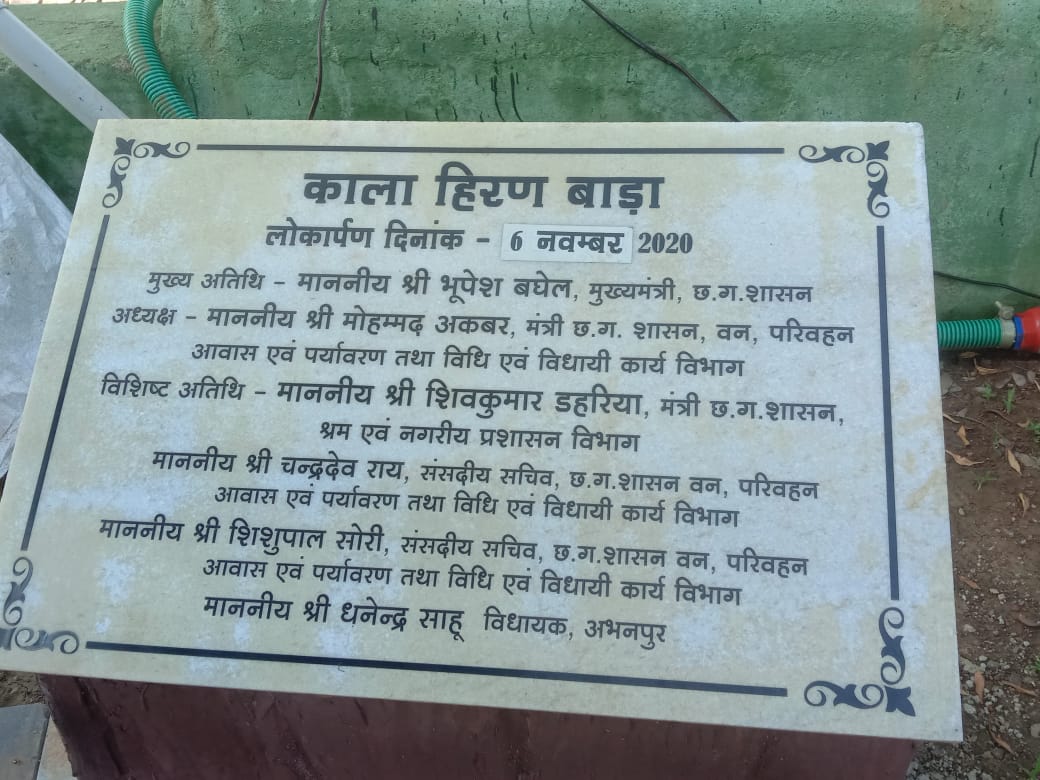 काला हिरण बाड़ा
लोकार्पण दिनांक - 6 नवम्बर 2020
मुख्य अतिथि - माननीय श्री भूपेश बघेल, मुख्यमंत्री, छ.ग.शासन
अध्यक्ष - माननीय श्री मोहम्मद अकबर, मंत्री छ.ग. शासन, वन, परिवहन
आवास एवं पर्यावरण तथा विधि एवं विधायी कार्य विभाग
विशिष्ट अतिथि - माननीय श्री शिवकुमार डहरिया, मंत्री छ.ग.शासन,
श्रम एवं नगरीय प्रशासन विभाग
माननीय श्री चन्द्रदेव राय, संसदीय सचिव, छ.ग.शासन वन, परिवहन
आवास एवं पर्यावरण तथा विधि एवं विधायी कार्य विभाग
माननीय श्री शिशुपाल सोरी, संसदीय सचिव, छ.ग.शासन वन, परिवहन
आवास एवं पर्यावरण तथा विधि एवं विधायी कार्य विभाग
माननीय श्री धनेन्द्र साहू विधायक, अभनपुर